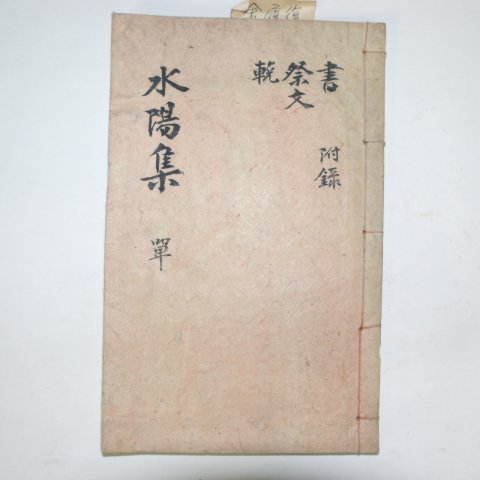 書 附錄
祭文
輓
水陽集 單